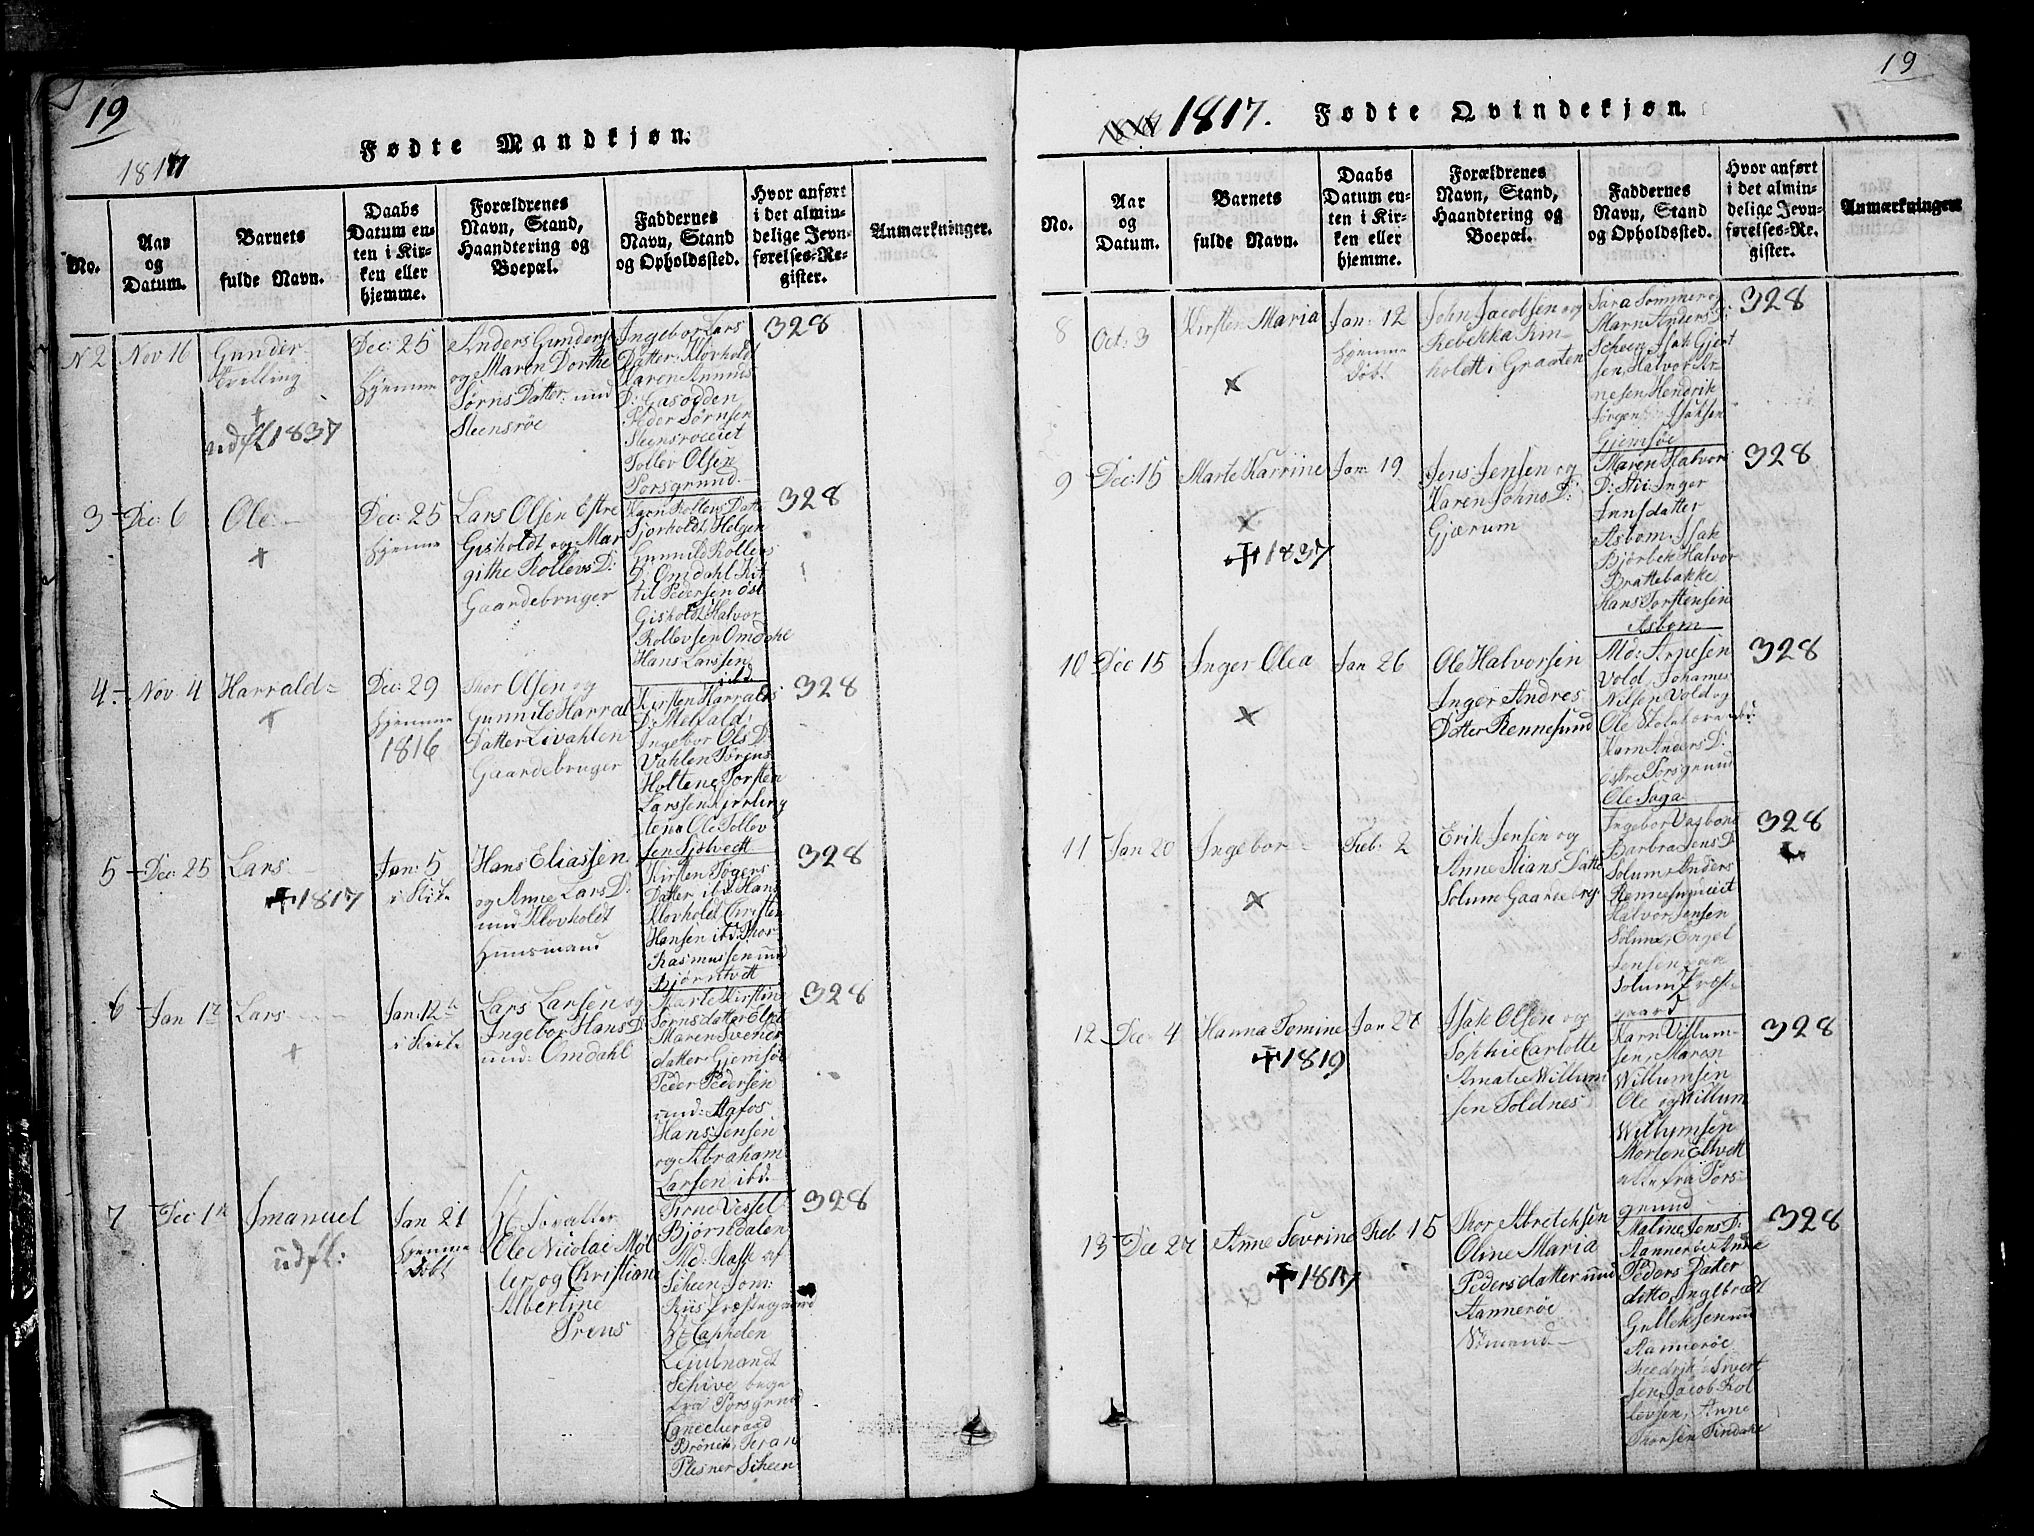 19
1817
Fødte Mandkjøn.
No.
Aar
og
Datum.
Barnets
fulde Navn.
Daabs
Datum en-
ten i Kir-
ken eller
hjemme.
Forældrenes
Navn, Stand,
Haandtering og
Boepæl.
Faddernes
Navn, Stand
og Opholdssted.
Hvor anført
i det almin-
delige Jevn-
førelses-Re-
gister.
Anmærkninger.
N 2
Nov 16
Gunder
Tvilling
+
udfl 1837
Dec: 25
hjemme
Anders Gunders
og Maren Dorthe
Sørns Datter und
Steensrøe
Ingebor Lars
Datter Klovholdt
Karen Anunds
D: Gasodden
Peder Sørnsen
Steensroeeiet
Tollev Olsen
Porsgrund
328
3
Dec: 6
Ole
+
Dec: 25
hjemme
Lars Olsen østre
Gisholdt og Mar
githe Rollevs D:
Gaardebruger
Karn Rollevs Datt
Fjorholdt Helgen
Gunnild Rollevs
D: Omdahl Kit
til Pedersen øst
Gisholdt Halvor
Rollevsen Omdahl
Hans Larssen
ibd
328
4
Nov 4
Harrald
+
Dec: 29
hjemme
1816
Thor Olsen og
Gunnild Harral
Datter Livahlen
Gaardebruger
Kirsten Harrals
D: Melvald
Ingebor Ols D:
Vahlen Jørgens
Holten Torsten
Larssen
Ole Tollev
sen
328
5
Dec: 25
Lars
+ 1817
Jan: 5
i Kirke
Hans Eliassen
og Anne Lars D:
und Klovholdt
Huusmand
Kirsten Jøgens
Datter ibd Hans
Klovholdt Christen
Hansen ibd: Thor
Rasmussen und
Bjørntvedt
328
6
Jan 1
Lars
+
Jan: 12
i Kirke
Lars Larsen og
Ingebor Hans D:
und: Omdahl
Marte Kirstine
Sørnsdatter
Maren Svenes
datter Gjemsøe
Peder Pedersen
und: Aafos
Hans Jensen
og Abraham
Larsen ibd.
328
7
Dec 1
Imanuel
udfl:
Jan 21
hjemme
døbt
Hr Foraller
Ole Nicolai Møl
ler og Christiane
Albertine
Preus
Vessel
Bjørndalen
Md: Rask af
Scheen, Jom:
Riis Præstegaard
Hr Cappelen
Leiutnandt
Schive begge
fra Porsgrund
Cancheraad
Plesner Scheen
328
19
1817. Fødte Qvindekjøn.
No.
Aar
og
Datum.
Barnets
fulde Navn.
Daabs
Datum en-
ten i Kir-
ken eller
hjemme.
Forældrenes
Navn, Stand,
Haandtering og
Boepæl.
Faddernes
Navn, Stand
og Opholdssted.
Hvor anført
i det almin-
delige Jevn-
førelses-Re-
gister.
Anmærkninger
8
Oct: 3
Kirsten Maria
x
Jan: 12
hjemme
døbt
John Jacobsen og
Rebekka Rin
holdt i Graaten
Sara Sommer og
Marn Anders D:
Scheen Isak Giert
sen, Halvor Ar
nesen Hendrik
Jørgen Isaksen
Gjemsøe
328
9
Dec: 15
Marte Karrine
x
+ 1837
Jan: 19
Jens Jensen og
Karen Johns D:
Gjærum
Maren Halvors
D: Stii Inger
Jensdatter
Asbom, Isak
Bjørbek Halvor
Brattebakke
Hans Torstensen
Asbom
328
10
Dec 15
Inger Olea
x
Jan 26
Ole Halvorsen
Inger Andres
Datter Rennesund
Md: Arnesen
Vold, Johannes
Nilsen Vold og
Ole
Karn Anders D:
østre Porsgrund
Ole Saga
328
11
Jan 20
Ingebor
x
Feb: 2
Erik Jensen og
Anne Stians Datte
Solum Gaardbrg:
Ingebor Vagbond
Barbra Jens D:
Solum, Anders
Rennesundeiet
Halvor Jensen
Solum, Engel
Jensen
Solum Præste
gaard
328
12
Dec 4
Hanna Tomine
+ 1819
Jan 27
Isak Olsen og
Sophie Carlotte
Amalie Willum
sen Toldnes
Karn Villum
sen, Maren
Willumsen
Ole og Willum
Willumsen
Morten Eltvedt
alle fra Pors-
grund
328
13
Dec 27
Anne Sevrine
+ 1817
Feb 15
Thor Abretchsen
Oline Maria
Pedersdatter und
Aannerøe
Malene Jens D:
Aannerøe Anne
Peders Datter
ditto, Inglbræt
Gulleksen und
Aannerøe
Fredrik Sivert
sen, Jacob Rol
levsen, Anne
Thorsen Findahl
328